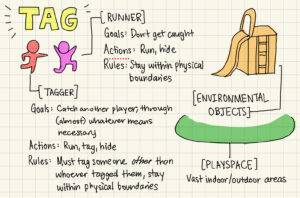 TAG
[RUNNER]
Goals: Don't get caught
Actions: Run, hide
Rules: Stay within physical
boundaries
[TAGGER]
Goals: Catch another player, through
(almost) whatever means
necessary
Actions: Run, tag, hide
Rules: Must tag someone other than
whoever tagged them, stay
within physical boundaries
[ENVIRONMENTAL
OBJECTS]
[PLAYSPACE]
Vast indoor/outdoor areas